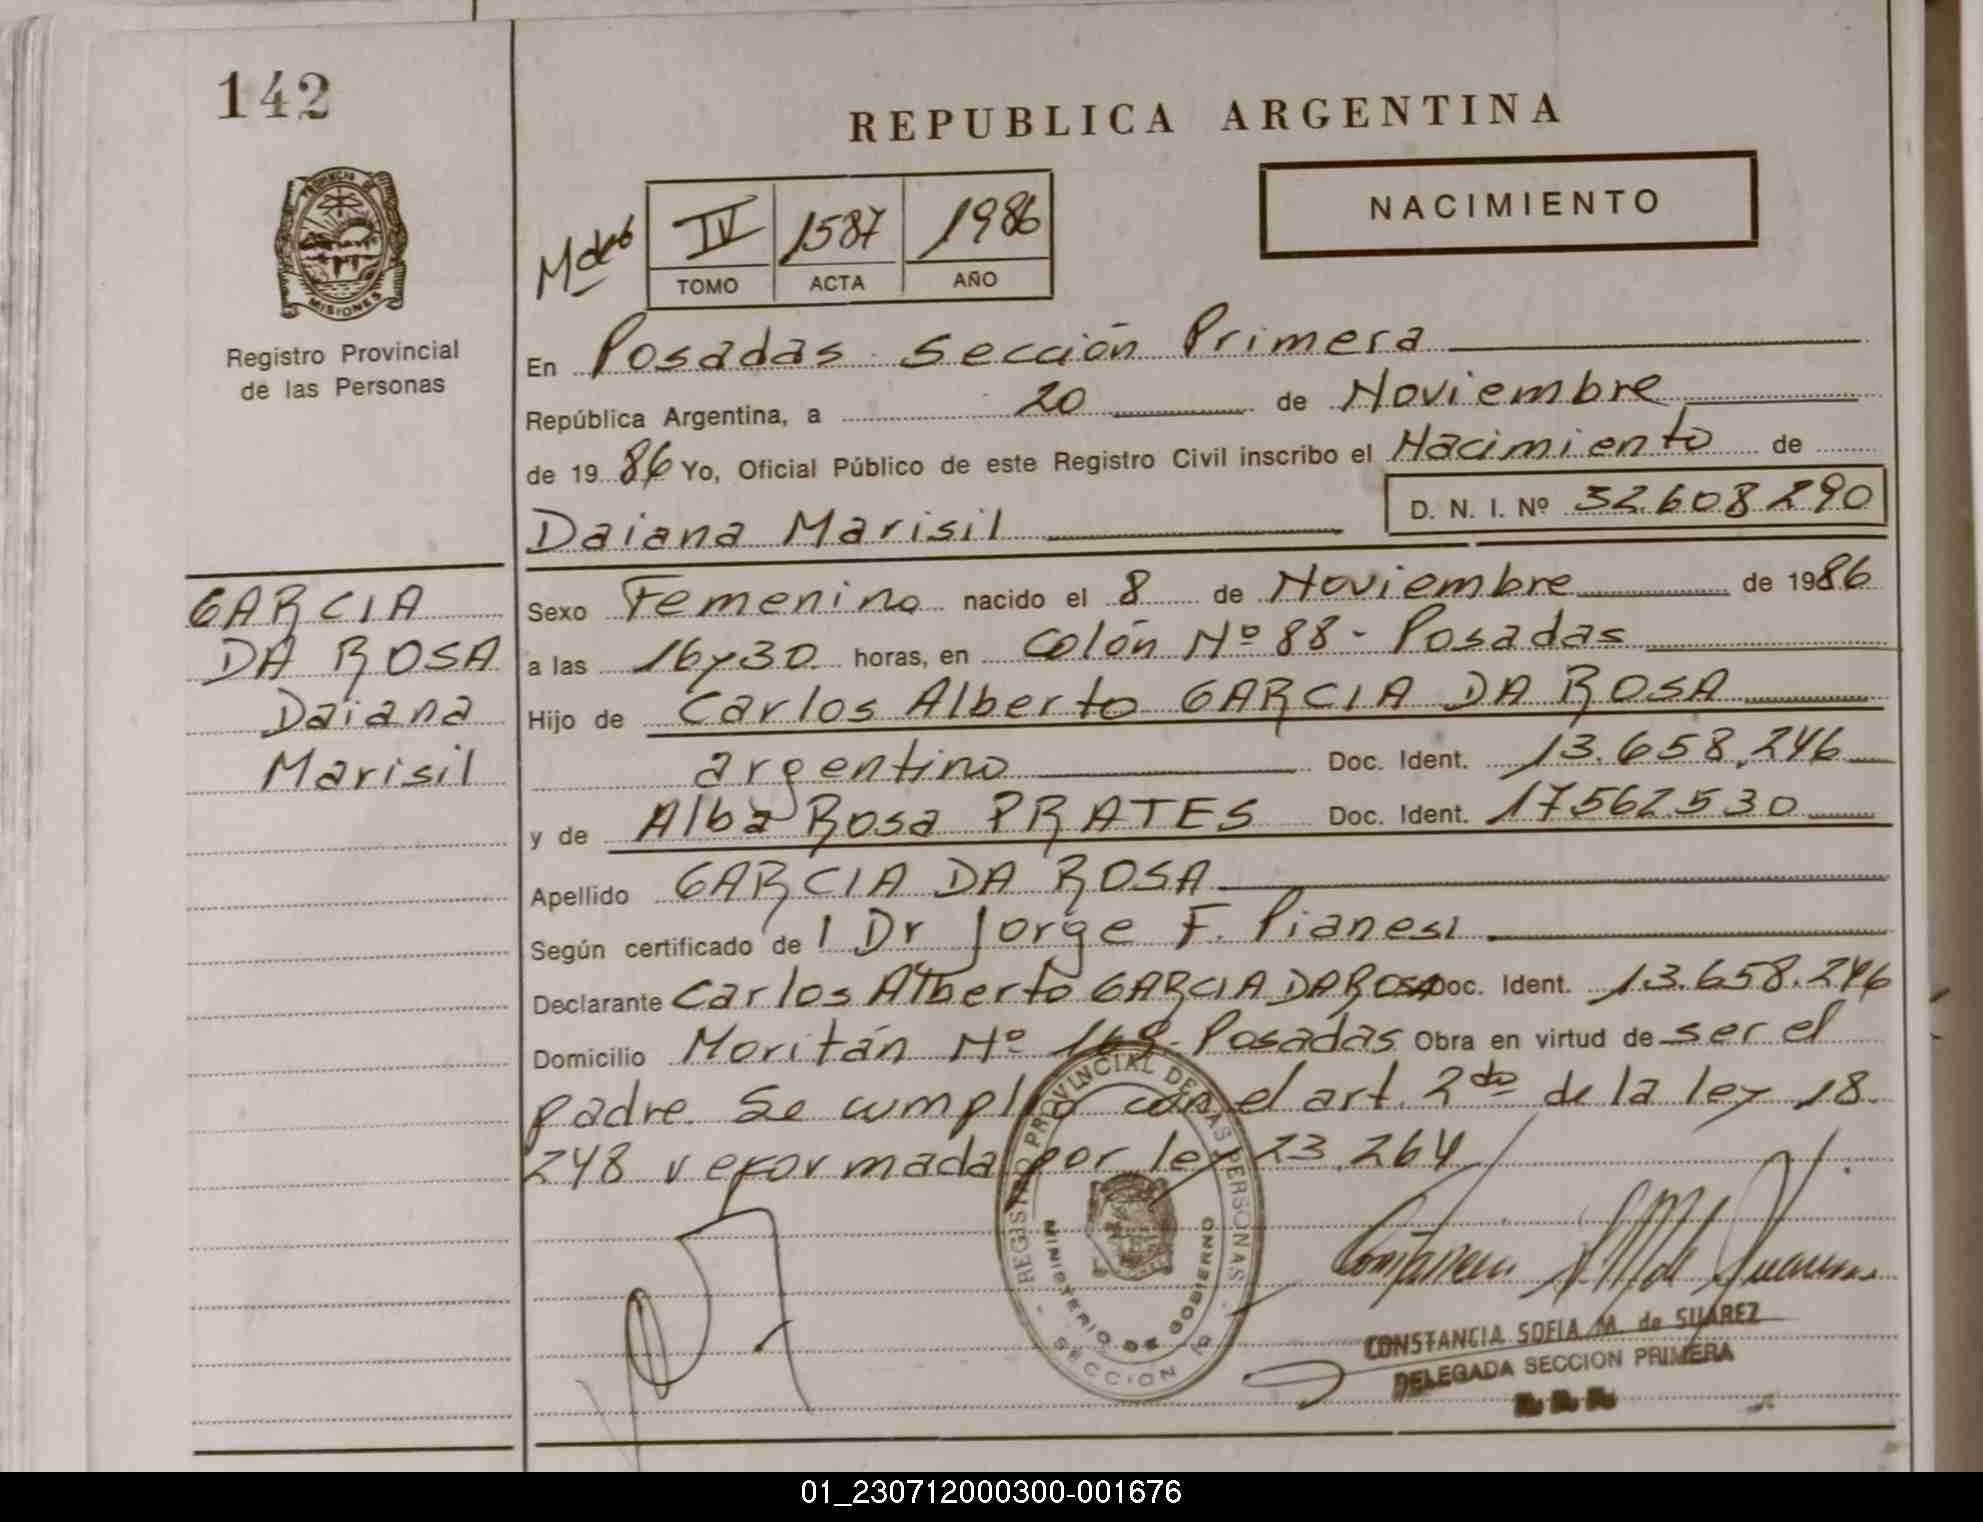 142
REPUBLICA ARGENTINA
PROVINCIA DE
MISIONES
NACIMIENTO
IV 1587 1986
TOMO ACTA AÑO
Registro Provincial
de las Personas
En Posadas Sección Primera
República Argentina, a 20 de Noviembre
de 1986 Yo, Oficial Público de este Registro Civil inscribo el Nacimiento de
Daiana Marisil D. N. I. Nº 32.608290
GARCIA
DA ROSA
Daiana
Marisil
Sexo Femenino nacido el 8 de Noviembre de 1986
a las 16y30 horas, en Colón Nº 88 - Posadas
Hijo de Carlos Alberto GARCIA DA ROSA
argentino Doc. Ident. 13.658.246
y de Alba Rosa PRATES Doc. Ident. 17562530
Apellido GARCIA DA ROSA
Según certificado de l Dr Jorge F. Pianesi
Declarante Carlos Alberto GARCIA DA ROSA Doc. Ident. 13.658.246
Domicilio Moritán Nº 168- Posadas Obra en virtud de ser el
padre. Se cumplió con el art. 2do de la ley 18.
248 reformada por ley 23.264
REGISTRO PROVINCIAL DE LAS PERSONAS
MINISTERIO DE GOBIERNO
SECCION 1ª
CONSTANCIA SOFIA M. de SUAREZ
DELEGADA SECCION PRIMERA
01_230712000300-001676